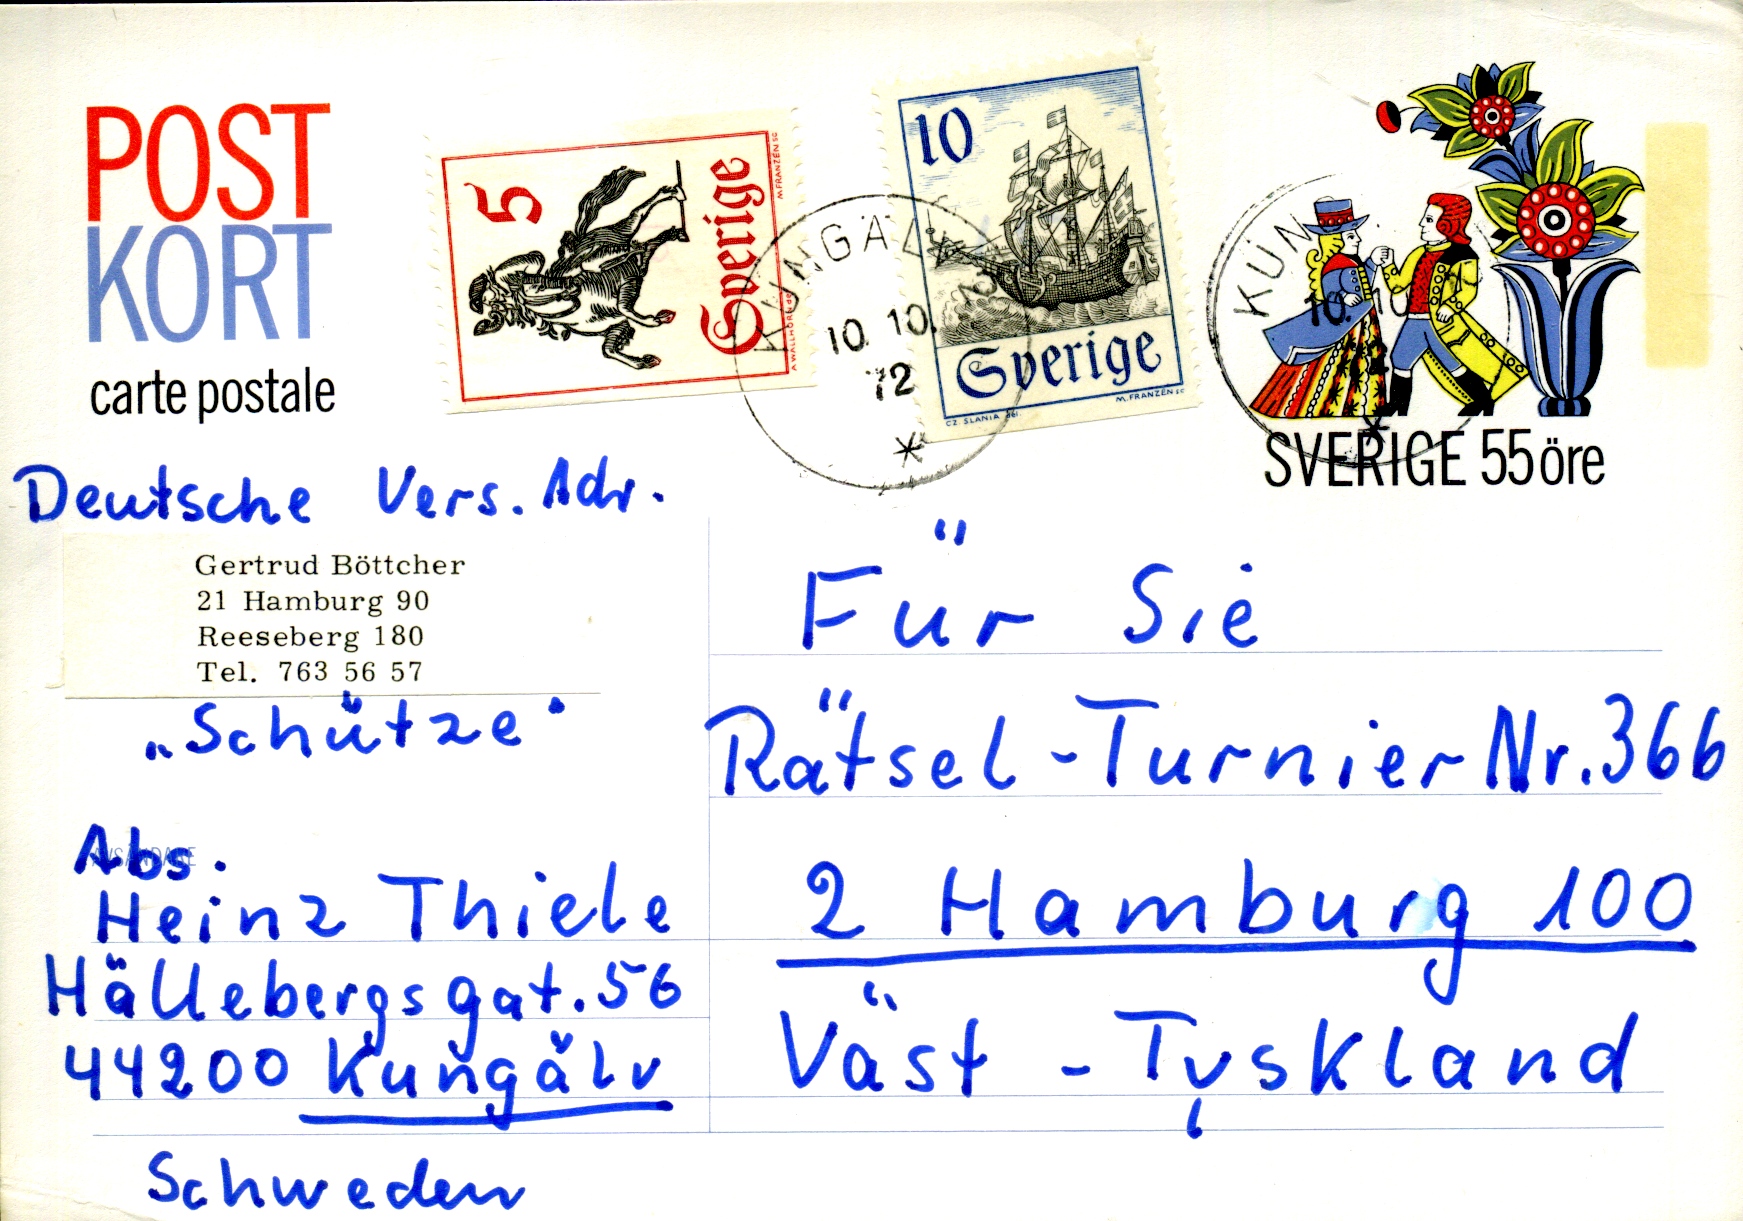 POST
KORT
carte postale
5
Sverige
M. FRANZÉN SC
10
Sverige
CZ. SLANIA
M. FRANZÉN SC
KUNGÄLV
10. 10.
72
KUN
10.
SVERIGE 55 öre
Deutsche Vers. Adr.
Gertrud Böttcher
21 Hamburg 90
Reeseberg 180
Tel. 763 56 57
„Schütze"
AVSÄNDARE
Abs.
Heinz Thiele
Hällebergsgat. 56
44200 Kungälv
Schweden
Für Sie
Rätsel-Turnier Nr. 366
2 Hamburg 100
Väst-Tyskland